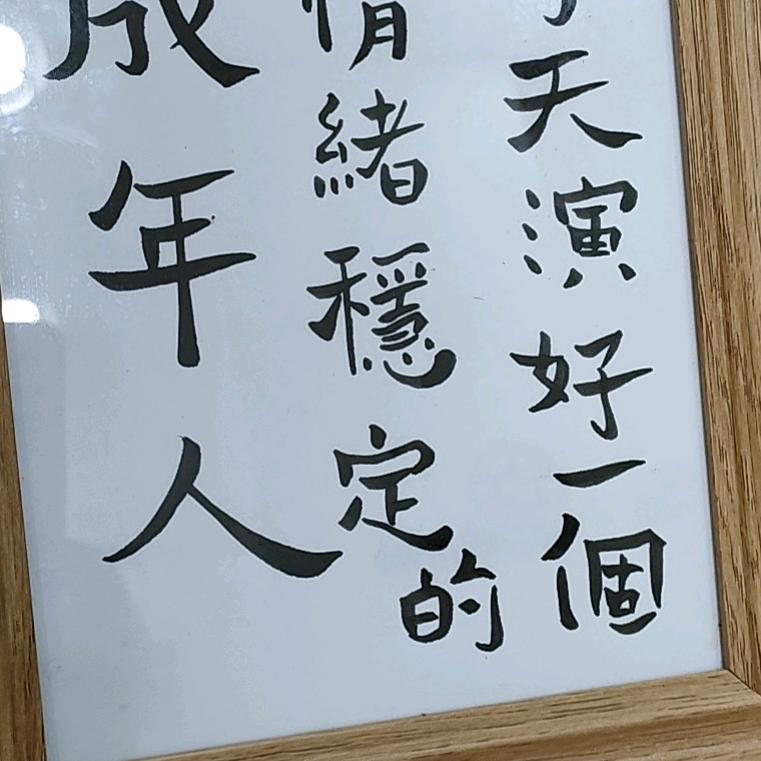 天演好一個
情緒穩定的
成年人